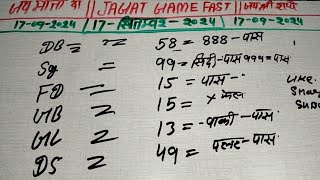 जय माता दी || JAGAT GAME FAST || जय माता दी
17-09-2024 || 17 - सितम्बर - 2024 || 17-09-2024
DB = 58 = 888 - पास
Sg = 99 = सिदी - पास 999 = पास
FD = 15 = पास - LIKE
GB = 15 = x फेल
GL = 13 = - पास
DS = 49 = पलट - पास